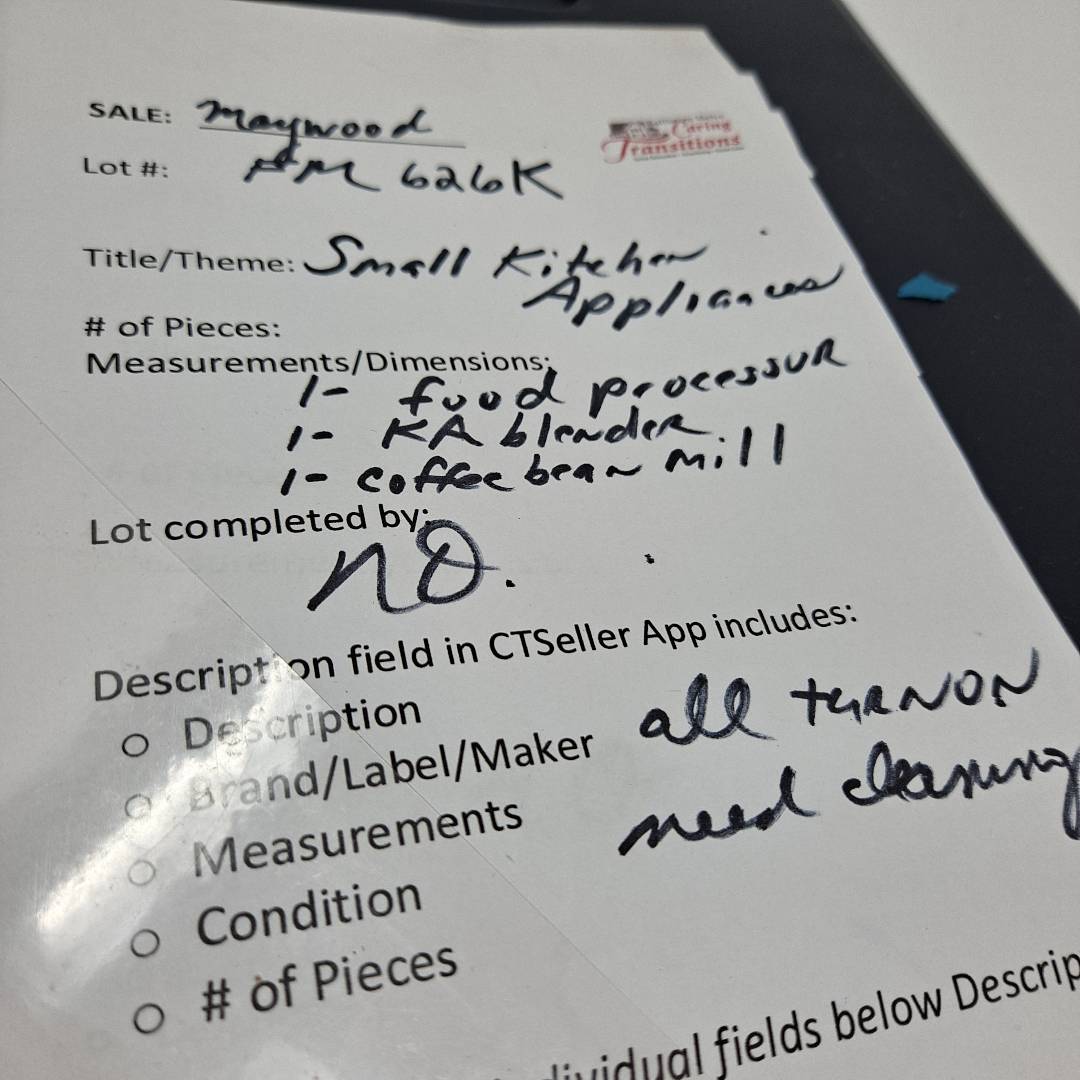 SALE: Maywood
Caring
Transitions
Lot #: AM 626K
Title/Theme: Small Kitchen
Appliances
# of Pieces:
Measurements/Dimensions:
1- food processor
1- KA blender
1- coffee bean mill
Lot completed by:
NO.
Description field in CTSeller App includes:
O Description
O Brand/Label/Maker
all turn on
O Measurements
need cleaning
O Condition
O # of Pieces
fields below